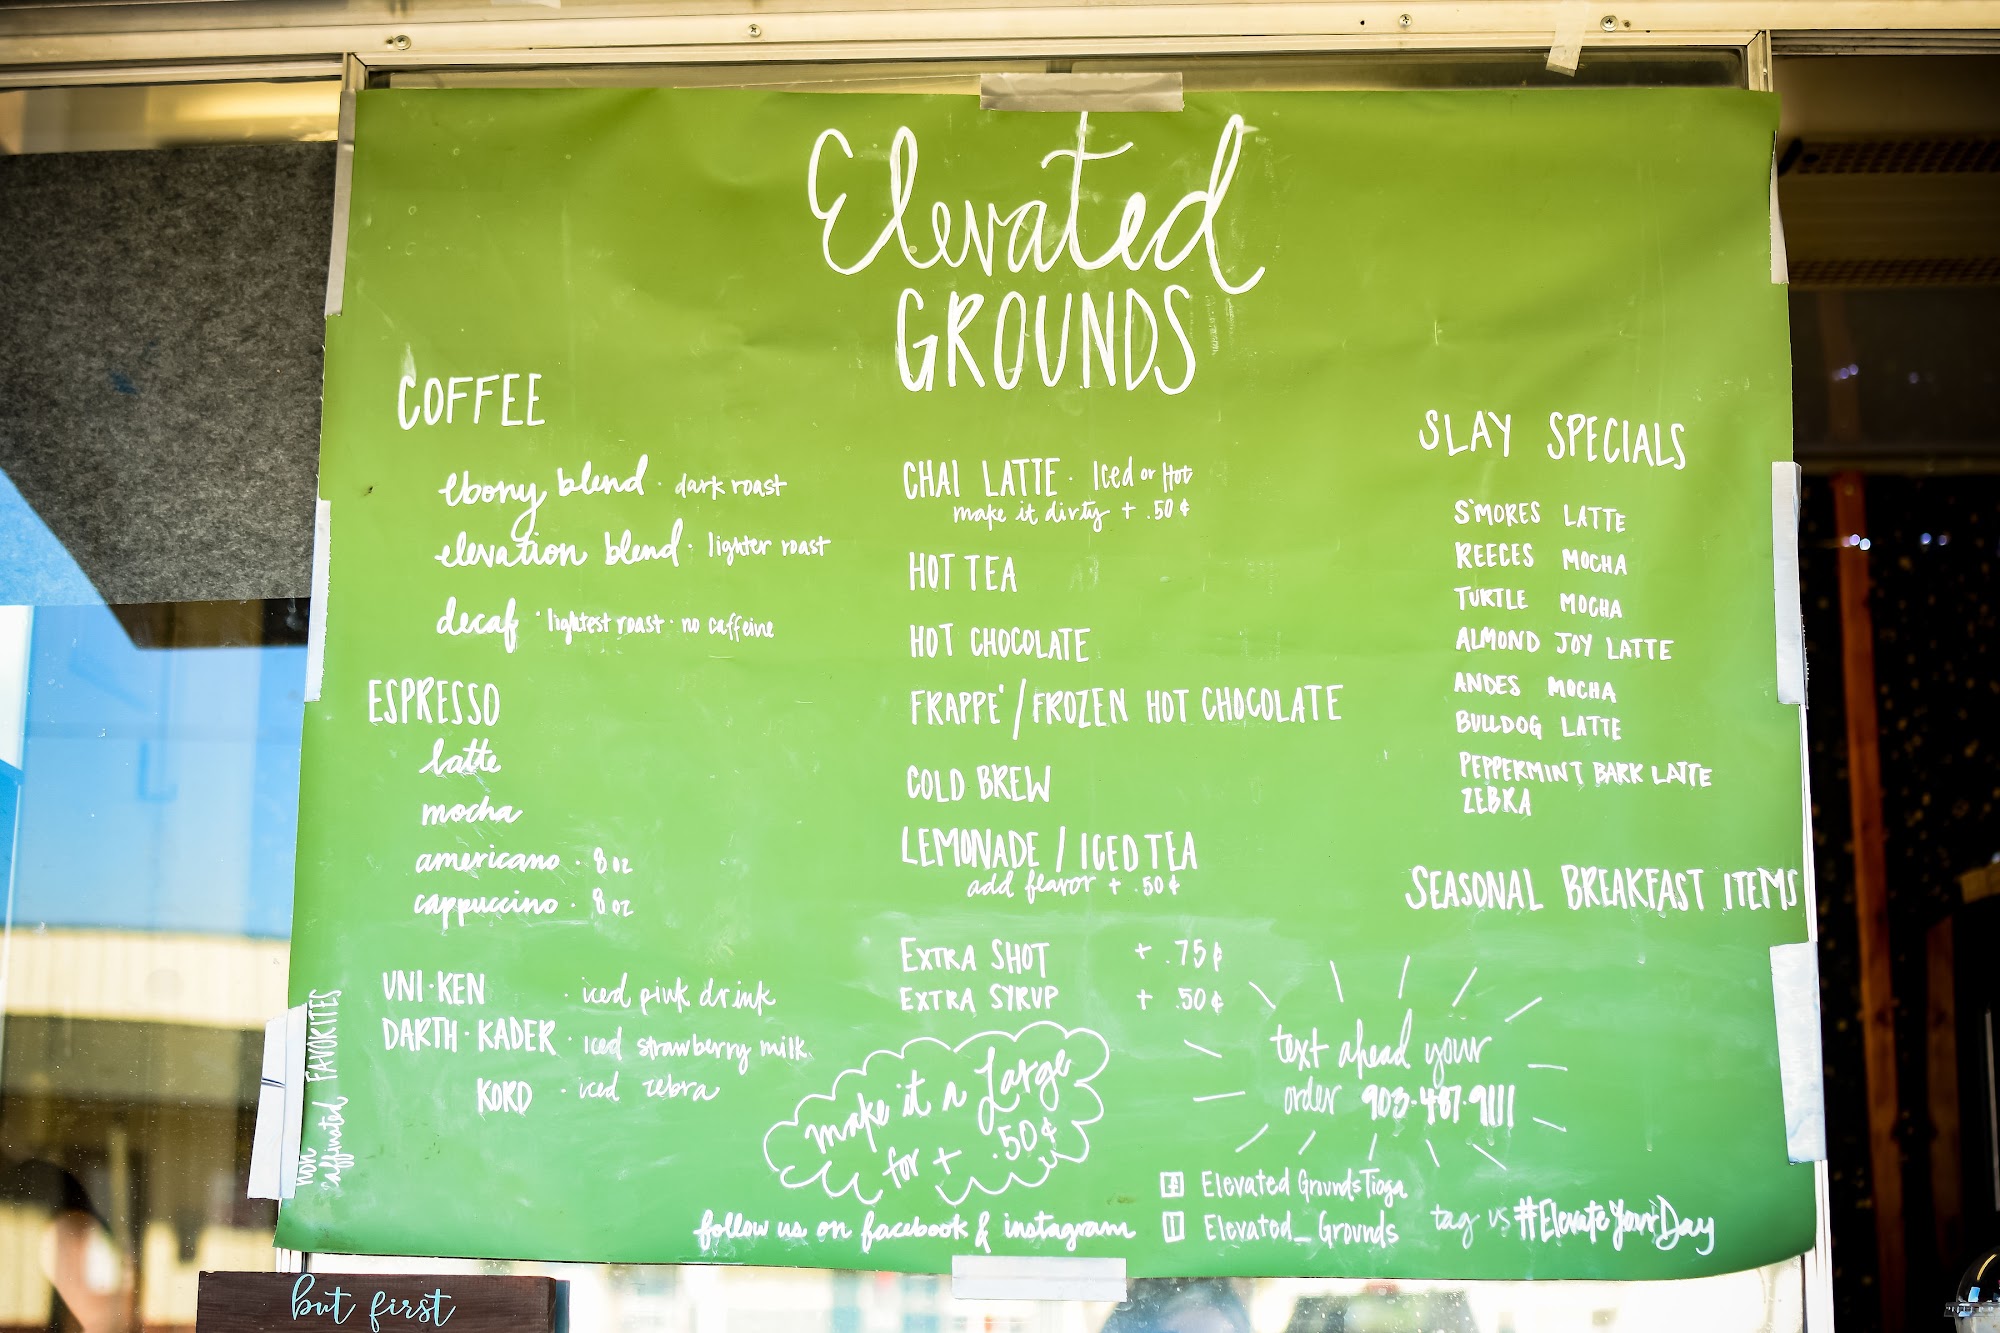 Elevated
GROUNDS
COFFEE
ebony blend · dark roast
elevation blend · lighter roast
decaf · lightest roast · no caffeine
ESPRESSO
latte
mocha
americano · 8 oz
cappuccino · 8 oz
non caffinated FAVORITES
UNI·KEN · iced pink drink
DARTH·KADER · iced strawberry milk
KORD · iced zebra
CHAI LATTE · Iced or Hot
make it dirty + .50¢
HOT TEA
HOT CHOCOLATE
FRAPPE' / FROZEN HOT CHOCOLATE
COLD BREW
LEMONADE / ICED TEA
add flavor + .50¢
EXTRA SHOT + .75¢
EXTRA SYRUP + .50¢
make it a Large
for + .50¢
SLAY SPECIALS
S'MORES LATTE
REECES MOCHA
TURTLE MOCHA
ALMOND JOY LATTE
ANDES MOCHA
BULLDOG LATTE
PEPPERMINT BARK LATTE
ZEBRA
SEASONAL BREAKFAST ITEMS
text ahead your
order 903·487·9111
follow us on facebook & instagram
f Elevated GroundsTioga
Elevated_Grounds
tag us #ElevateYourDay
but first